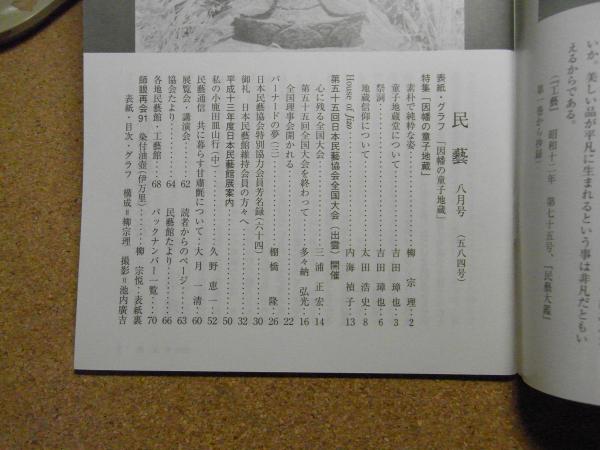 いか。美しい品が平凡に生まれるという事は非凡だともい
えるからである。
(「工藝」 昭和十二年 第七十五号、『民藝大鑑』
第一巻から抄録)
民藝 八月号 (五八四号)
表紙・グラフ 「因幡の童子地蔵」
特集「因幡の童子地蔵」
素朴で純粋な姿………柳 宗理…2
童子地蔵堂について………吉田 璋也…3
祭詞………吉田 璋也…6
地蔵信仰について………太田 浩史…8
House of Jizo………内海 禎子…13
第五十五回日本民藝協会全国大会(出雲)開催
心に残る全国大会………三浦 正宏…14
第五十五回全国大会を終わって………多々納 弘光…16
全国理事会開かれる………22
バーナードの夢(三)………棚橋 隆…26
日本民藝協会特別協力会員芳名録(六十四)………30
御礼 日本民藝館維持会員の方々へ………32
平成十三年度日本民藝館展案内………50
私の小鹿田皿山行(中)………久野 恵一…52
民藝通信 共に暮らす甘露甕について…大月 一清…60
展覧会・講演会………62
読者からのページ………63
協会たより………64
民藝館たより………66
各地民藝館・工藝館………68
バックナンバー一覧………70
師眼再会91 染付油壺(伊万里)………柳 宗悦…表紙裏
表紙・目次・グラフ 構成=柳宗理 撮影=池内廣吉